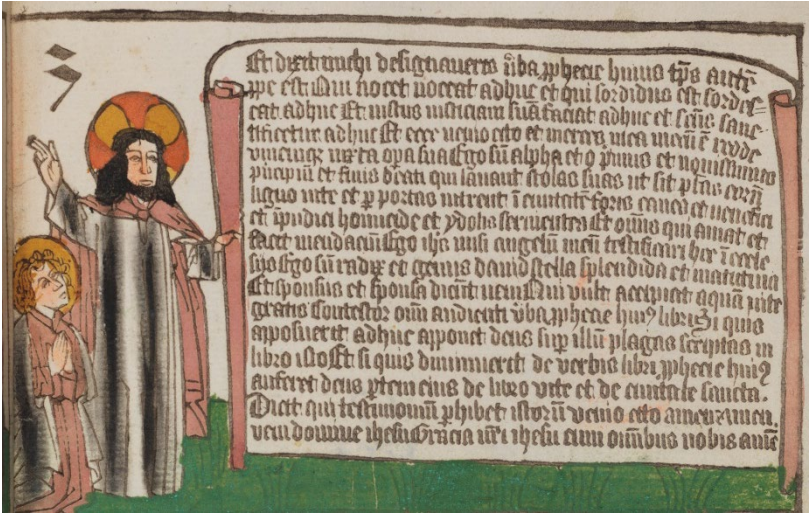 Et dixit michi de signaveris v̄ba ꝓphecie huius tp̄s autē
ꝓpe est Qui nocet noceat adhuc et qui sordidus est sordes-
cat adhuc Et iustus iusticiam suā faciat adhuc et sc̄us sanc
tificetur adhuc Et ecce uenio cito et merces mea mecū ē redde
unicuiqꝫ iuxta oꝑa sua Ego sū alpha et o p̄mus et nouissimus
p̄ncipiū et finis Beati qui lauant stolas suas ut sit ptās eorū
ligno uite et ꝑ portas intrent ī ciuitatē foris canes et uenefici
et īpudici homicide et ydolis seruientes Et omnis qui amat et
facit mendaciū Ego ihs̄ misi angelū meū testificari hec ī eccle
sijs Ego sū radix et genus dauid stella splendida et matutina
Et sponsus et sponsa dicūt ueni Qui vult accipiat aquā uite
gratis Contestor om̄i audienti v̄ba ꝓphecie huiꝰ libri Si quis
apposuerit adhuc apponet deus suꝑ illū plagas scriptas in
libro isto Et si quis diminuerit de verbis libri ꝓphecie huiꝰ
auferet deus ꝑtem eius de libro uite et de ciuitate sancta.
Dicit qui testimoniū ꝑhibet istorū uenio cito amen
veni domine ihesu Gracia nr̄i ihesu cum om̄ibus uobis amē